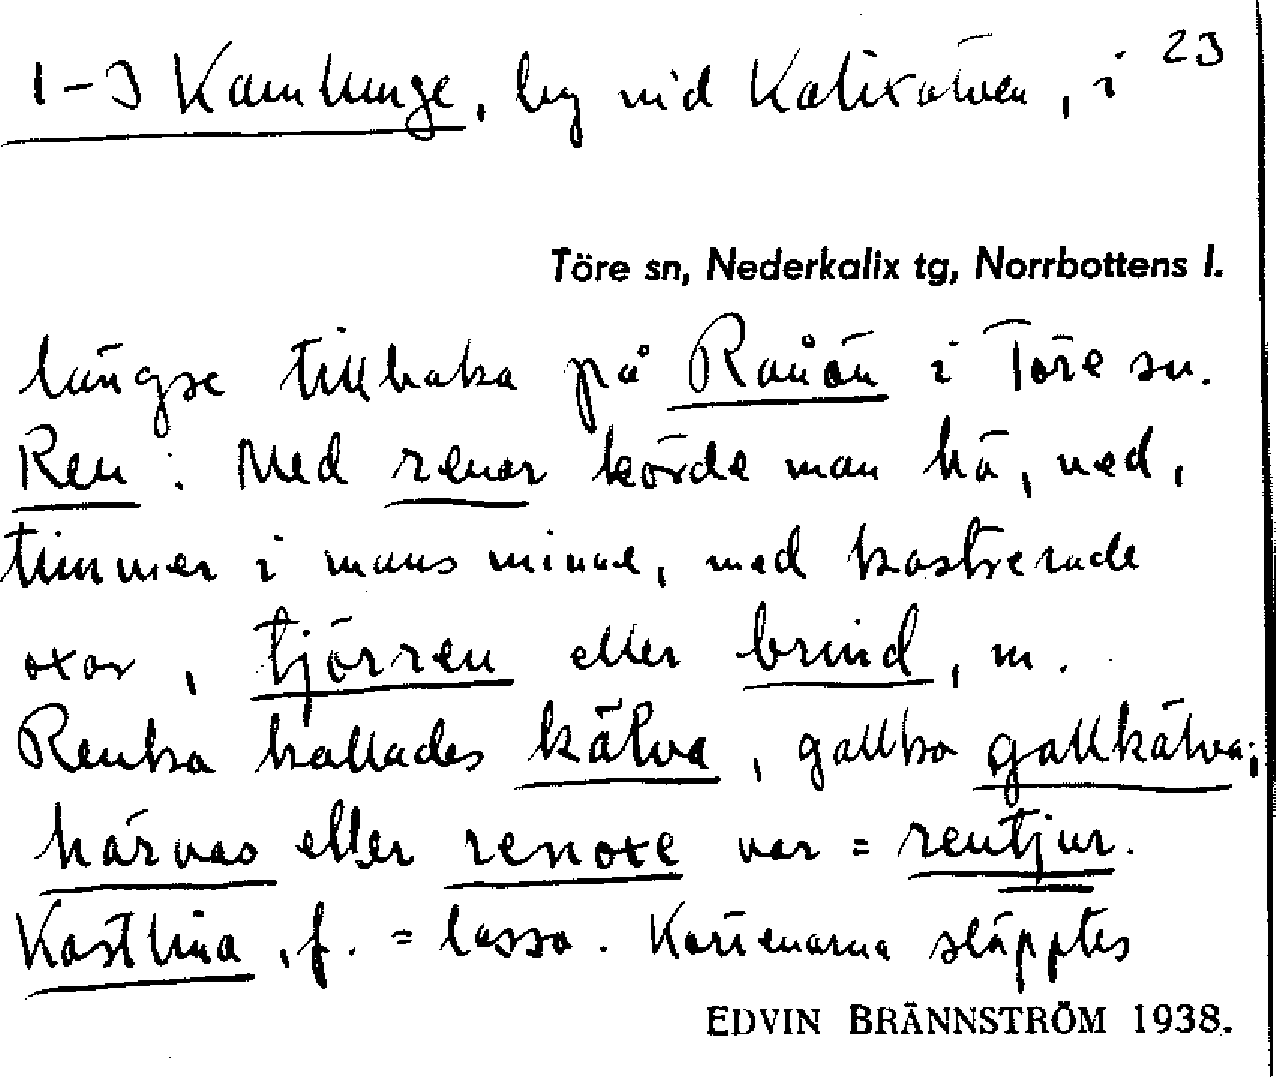 1-3 Kamlunge, by vid Kalixälven, i 23
Töre sn, Nederkalix tg, Norrbottens l.
längse tillbaka på Rånön i Töre sn.
Ren : Med renar körde man hö, ved,
timmer i mans minne, med kastrerade
oxar, tjörren eller brind, m.
Renko kallades kälva, gallko gallkälva;
härvas eller renoxe var = rentjur.
Kastlina, f. = lasso. Körrenarna släpptes
EDVIN BRÄNNSTRÖM 1938.